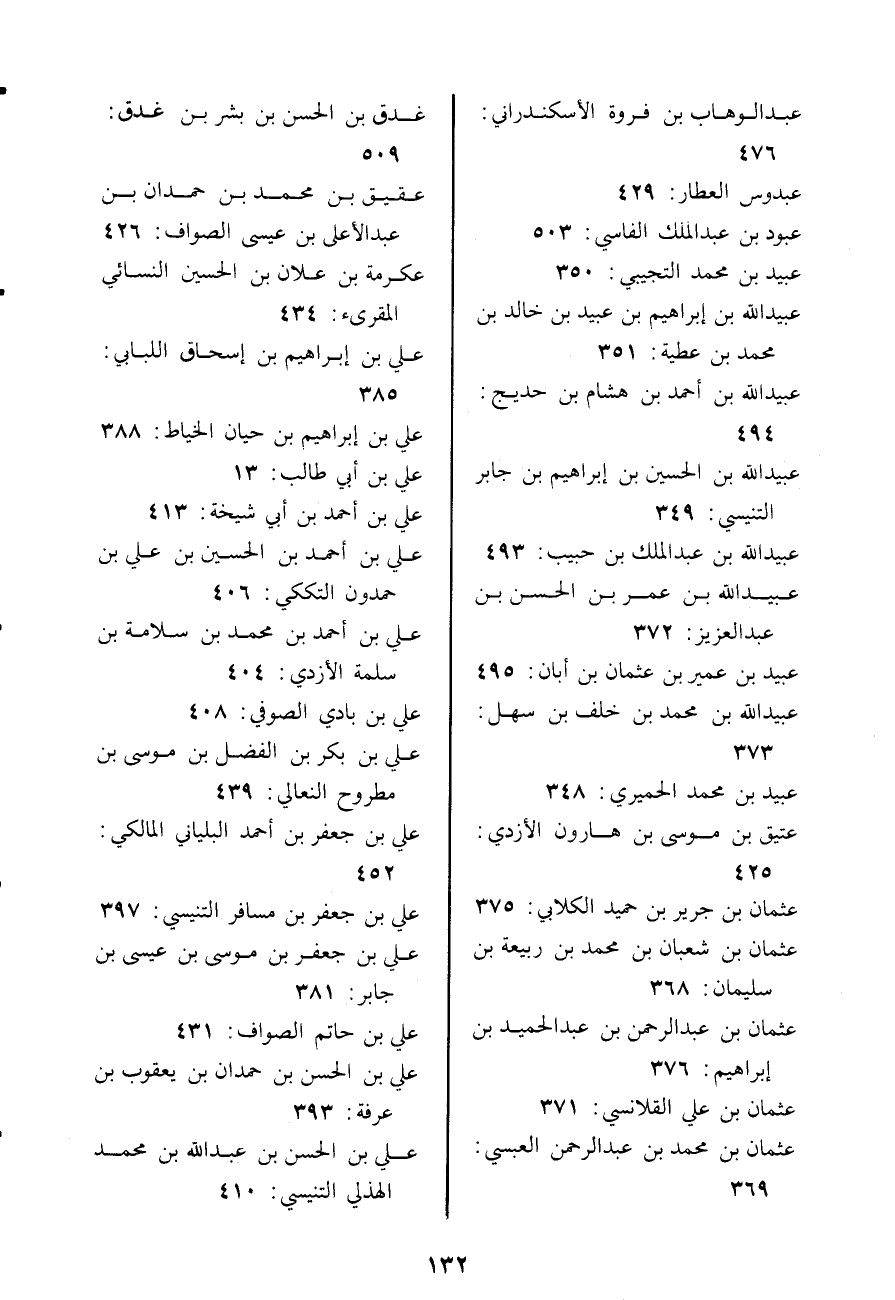 عبدالوهاب بن فروة الأسكندراني:
٤٧٦
عبدوس العطار: ٤٢٩
عبود بن عبدالملك الفاسي: ٥٠٣
عبيد بن محمد التجيبي: ٣٥٠
عبيدالله بن إبراهيم بن عبيد بن خالد بن
محمد بن عطية: ٣٥١
عبيدالله بن أحمد بن هشام بن حديج:
٤٩٤
عبيدالله بن الحسين بن إبراهيم بن جابر
التنيسي: ٣٤٩
عبيدالله بن عبدالملك بن حبيب: ٤٩٣
عبيدالله بن عمر بن الحسن بن
عبدالعزيز: ٣٧٢
عبيد بن عمير بن عثمان بن أبان: ٤٩٥
عبيدالله بن محمد بن خلف بن سهل:
٣٧٣
عبيد بن محمد الحميري: ٣٤٨
عتيق بن موسى بن هارون الأزدي:
٤٢٥
عثمان بن جرير بن حميد الكلابي: ٣٧٥
عثمان بن شعبان بن محمد بن ربيعة بن
سليمان: ٣٦٨
عثمان بن عبدالرحمن بن عبدالحميد بن
إبراهيم: ٣٧٦
عثمان بن علي القلانسي: ٣٧١
عثمان بن محمد بن عبدالرحمن العبسي:
٣٦٩
غدق بن الحسن بن بشر بن غدق:
٥٠٩
عقيق بن محمد بن حمدان بن
عبدالأعلى بن عيسى الصواف: ٤٢٦
عكرمة بن علان بن الحسين النسائي
المقرىء: ٤٣٤
علي بن إبراهيم بن إسحاق اللبابي:
٣٨٥
علي بن إبراهيم بن حيان الخياط: ٣٨٨
علي بن أبي طالب: ١٣
علي بن أحمد بن أبي شيخة: ٤١٣
علي بن أحمد بن الحسين بن علي بن
حمدون التككي: ٤٠٦
علي بن أحمد بن محمد بن سلامة بن
سلمة الأزدي: ٤٠٤
علي بن بادي الصوفي: ٤٠٨
علي بن بكر بن الفضل بن موسى بن
مطروح النعالي: ٤٣٩
علي بن جعفر بن أحمد البلياني المالكي:
٤٥٢
علي بن جعفر بن مسافر التنيسي: ٣٩٧
علي بن جعفر بن موسى بن عيسى بن
جابر: ٣٨١
علي بن حاتم الصواف: ٤٣١
علي بن الحسن بن حمدان بن يعقوب بن
عرفة: ٣٩٣
علي بن الحسن بن عبدالله بن محمد
الهذلي التنيسي: ٤١٠
١٣٢